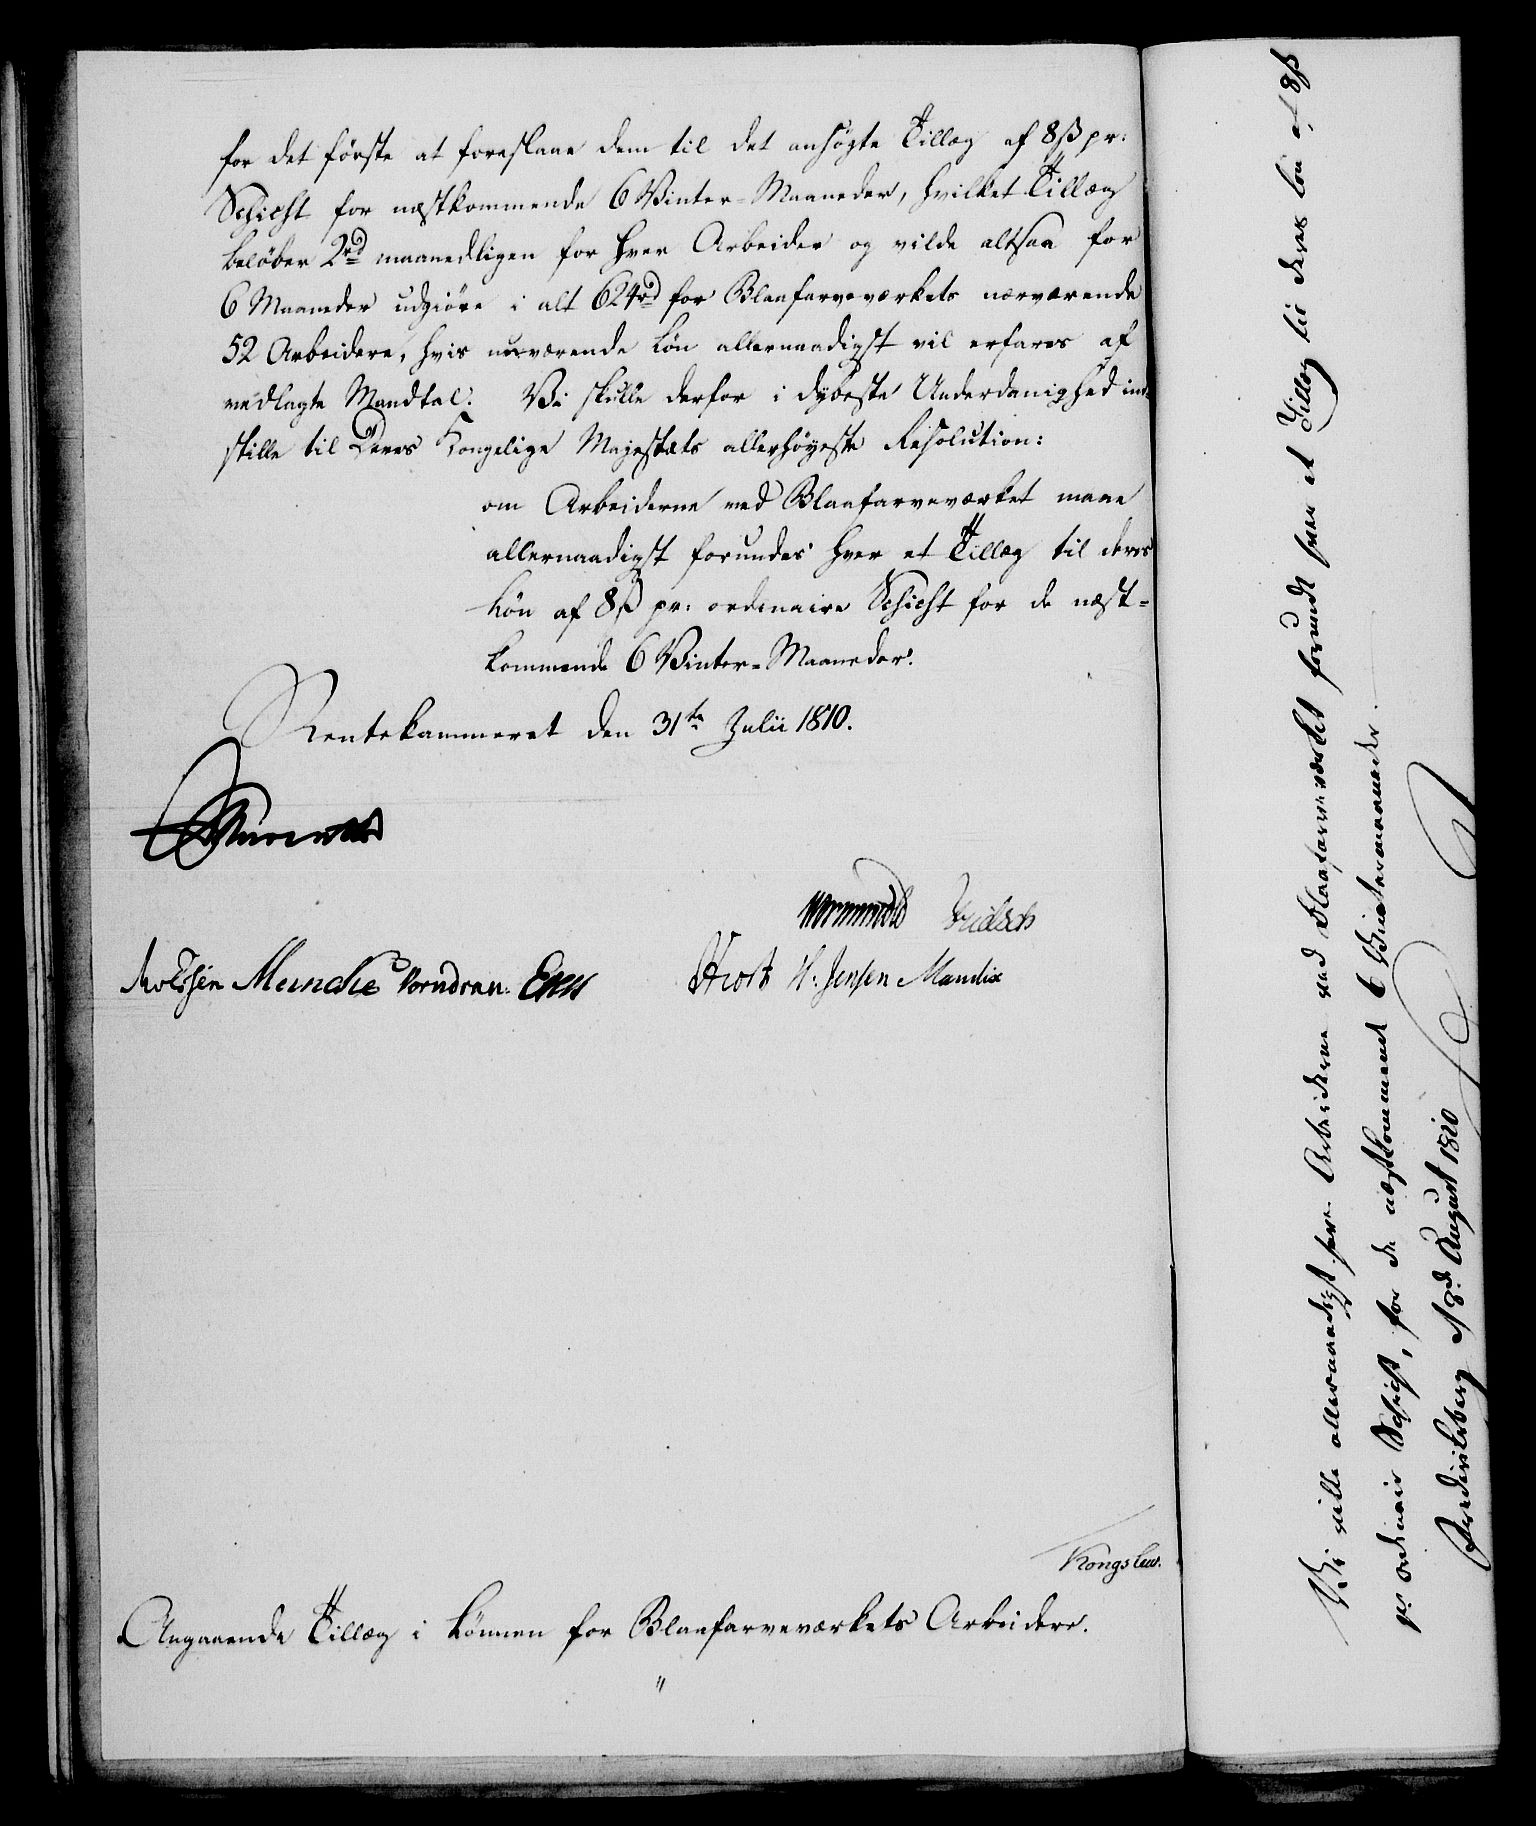 for det første at foreslaae dem til det ansøgte Tillæg af 8ß pr:
Schicht for næstkommende 6 Vinter-Maaneder, hvilket Tillæg
beløber 2rd maanedligen for hver Arbeider og vilde altsaa for
6 Maaneder udgiøre i alt 624rd for Blaafarveværkets nærværende
52 Arbeidere, hvis nuværende Løn allernaadigst vil erfares af
vedlagte Mandtal. Vi skulle derfor i dybeste Underdanighed ind-
stille til Deres Kongelige Majestæts allerhøyeste Resolution:
om Arbeiderne ved Blaafarveværket maae
allernaadigst forundes hver et Tillæg til deres
Løn af 8ß pr: ordinaire Schicht for de næst-
kommende 6 Vinter-Maaneder.
Rentekammeret den 31te Julii 1810.
Wormskiold
Knudsen Meincke Vorndran. Hiort H: Jensen Mandix
Kongslew.
Angaaende Tillæg i Lønnen for Blaafarveværkets Arbeidere.
"
Vi ville allernaadigst have Arbeiderne ved Blaafarveværket forundt hver et Tillæg til deres Løn af 8ß
pr ordinair Schicht, for de næstkommende 6 Vintermaaneder.
Frederiksberg d 8d August 1810